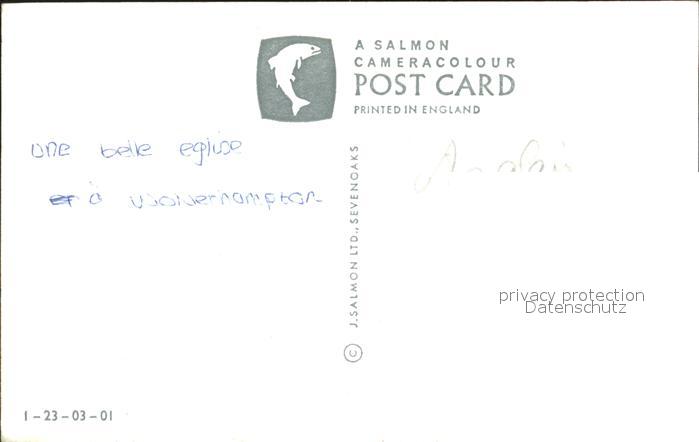 A SALMON
CAMERACOLOUR
POST CARD
PRINTED IN ENGLAND
une belle eglise
et à wolverhampton
© J. SALMON LTD., SEVENOAKS
privacy protection
Datenschutz
1-23-03-01